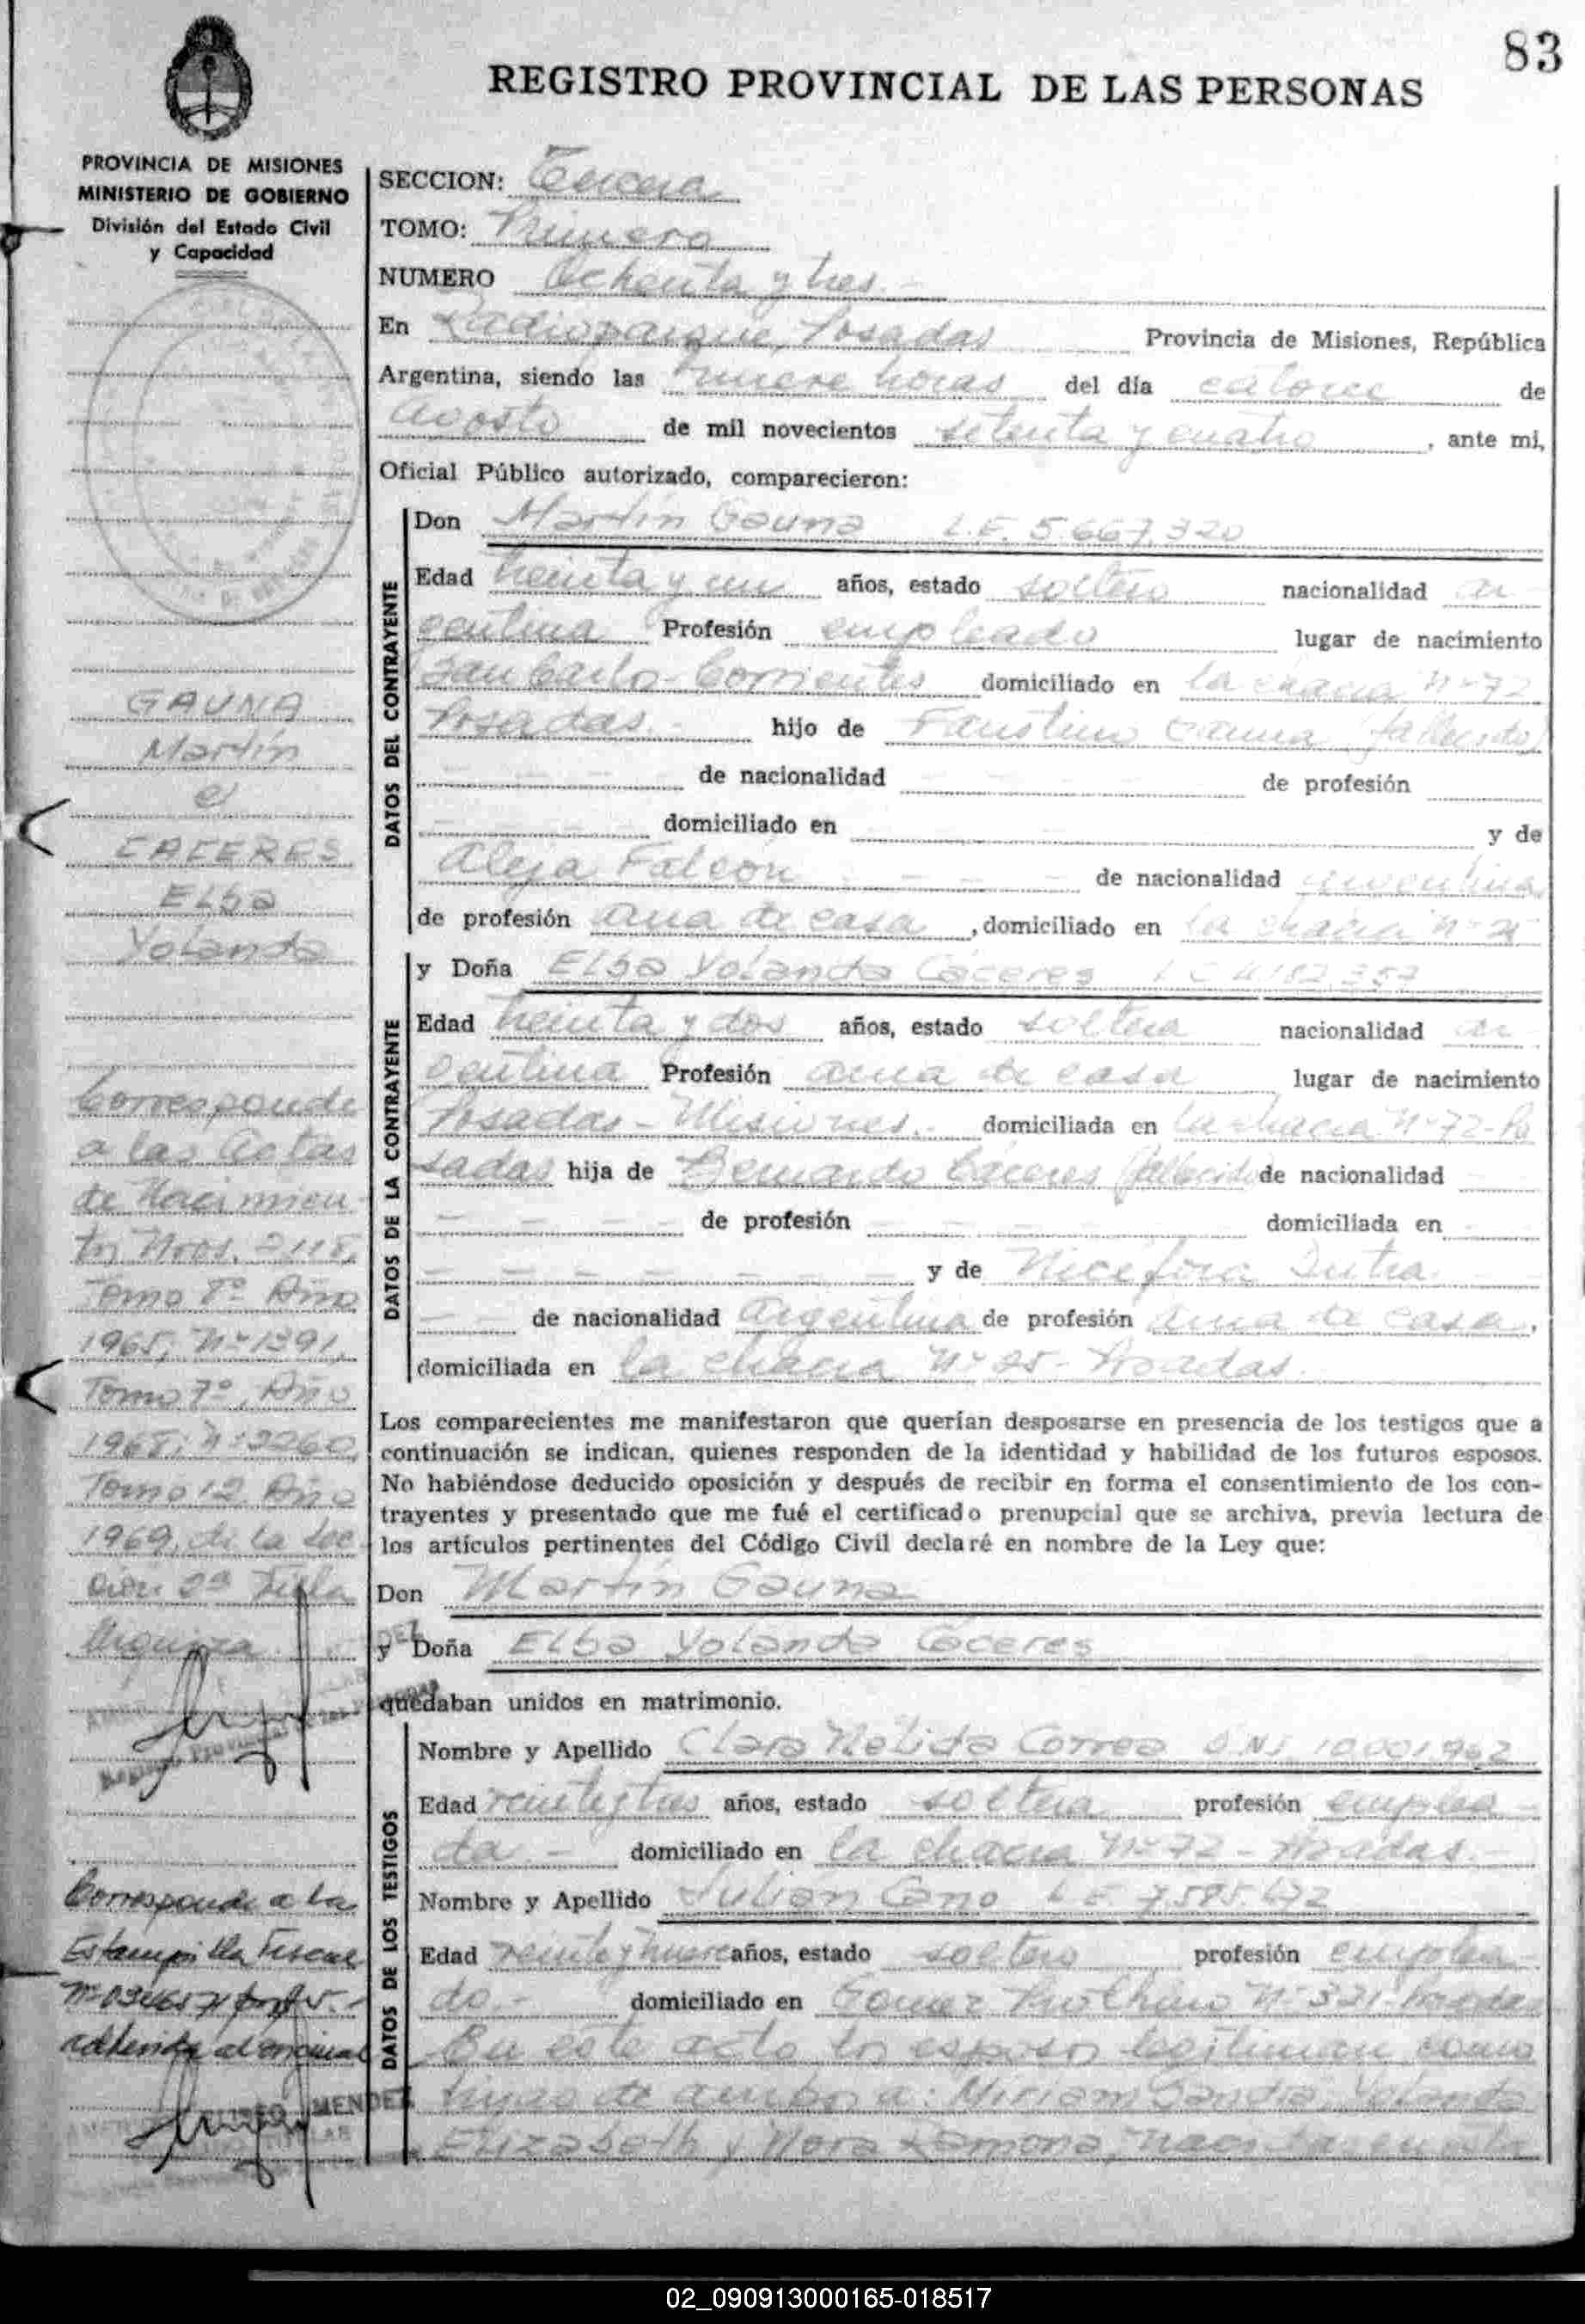 83
REGISTRO PROVINCIAL DE LAS PERSONAS
PROVINCIA DE MISIONES
MINISTERIO DE GOBIERNO
División del Estado Civil
y Capacidad
GAUNA
Martín
e/
CACERES
Elba
Yolanda
Corresponde
a las Actas
de Nacimien
to Nros. 2118,
Tomo 8º Año
1965, Nº 1391,
Tomo 7º, Año
1968, Nº 2260,
Tomo 12 Año
1969, de la Sec
ción 2ª Villa
Urquiza
Corresponde a la
Estampilla Fiscal
adherida al original
MENDEZ
SECCION: Tercera
TOMO: Primero
NUMERO Ochenta y tres.-
En Radioparque, Posadas Provincia de Misiones, República
Argentina, siendo las nueve horas del día catorce de
agosto de mil novecientos setenta y cuatro, ante mi,
Oficial Público autorizado, comparecieron:
DATOS DEL CONTRAYENTE
Don Martín Gauna L.E. 5.667.320
Edad treinta y un años, estado soltero nacionalidad ar
gentina Profesión empleado lugar de nacimiento
San Carlos-Corrientes domiciliado en la chacra Nº 72
Posadas.- hijo de Faustino Gauna (fallecido)
de nacionalidad de profesión
domiciliado en y de
Aleja Falcón de nacionalidad argentina
de profesión ama de casa, domiciliado en la chacra Nº
DATOS DE LA CONTRAYENTE
y Doña Elba Yolanda Cáceres L C
Edad treinta y dos años, estado soltera nacionalidad ar
gentina Profesión ama de casa lugar de nacimiento
Posadas-Misiones.- domiciliada en la chacra Nº 72-Po
sadas hija de Bernardo Cáceres (fallecido) de nacionalidad
de profesión domiciliada en
y de Nicéfora
de nacionalidad argentina de profesión ama de casa,
domiciliada en la chacra Nº 25- Posadas.
Los comparecientes me manifestaron que querían desposarse en presencia de los testigos que a
continuación se indican, quienes responden de la identidad y habilidad de los futuros esposos.
No habiéndose deducido oposición y después de recibir en forma el consentimiento de los con-
trayentes y presentado que me fué el certificado prenupcial que se archiva, previa lectura de
los artículos pertinentes del Código Civil declaré en nombre de la Ley que:
Don Martín Gauna
y Doña Elba Yolanda Cáceres
quedaban unidos en matrimonio.
DATOS DE LOS TESTIGOS
Nombre y Apellido Clara Nélida Correa D.N.I. 10.001.962
Edad veintitres años, estado soltera profesión emplea
da - domiciliado en la chacra Nº 72 - Posadas.-
Nombre y Apellido Julian Cano L.E. 7.585.672
Edad veintinueve años, estado soltero profesión emplea
do.- domiciliado en Nº 321-Posadas
En este acto los esposos legitiman como
hijas de ambos a: Miriam Sandra, Yolanda
Elizabeth y Nora Ramona, nacidas en esta
02_090913000165-018517